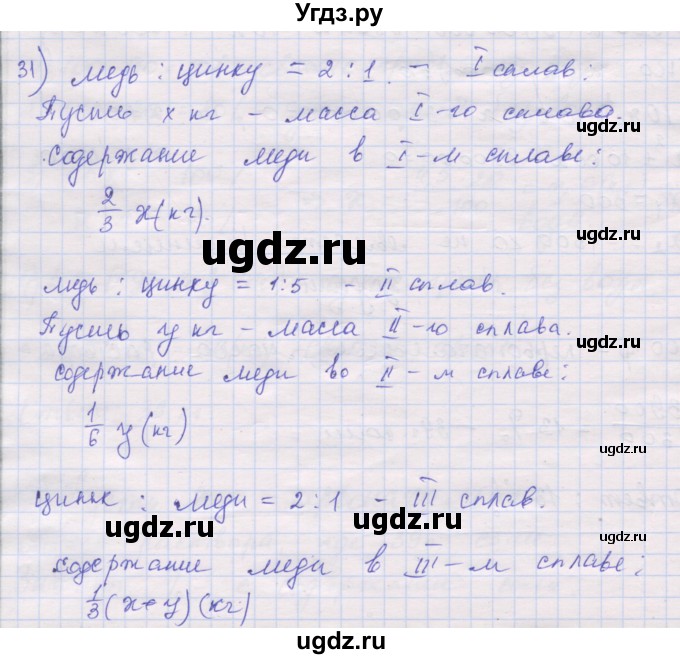 Угдз.ру
31) медь : цинку = 2 : 1. – I сплав:
Пусть x кг – масса I-го сплава.
ugdz.ru
Содержание меди в I-м сплаве:
ugdz.ru
2/3 x(кг).
ugdz.ru
медь : цинку = 1:5 – II сплав.
Пусть y кг – масса II-го сплава.
ugdz.ru
содержание меди во II-м сплаве:
1/6 y (кг)
ugdz.ru
цинк : меди = 2 : 1 – III сплав.
ugdz.ru
ugdz.ru
содержание меди в III-м сплаве:
1/3 (x+y) (кг)
ugdz.ru
ugdz.ru